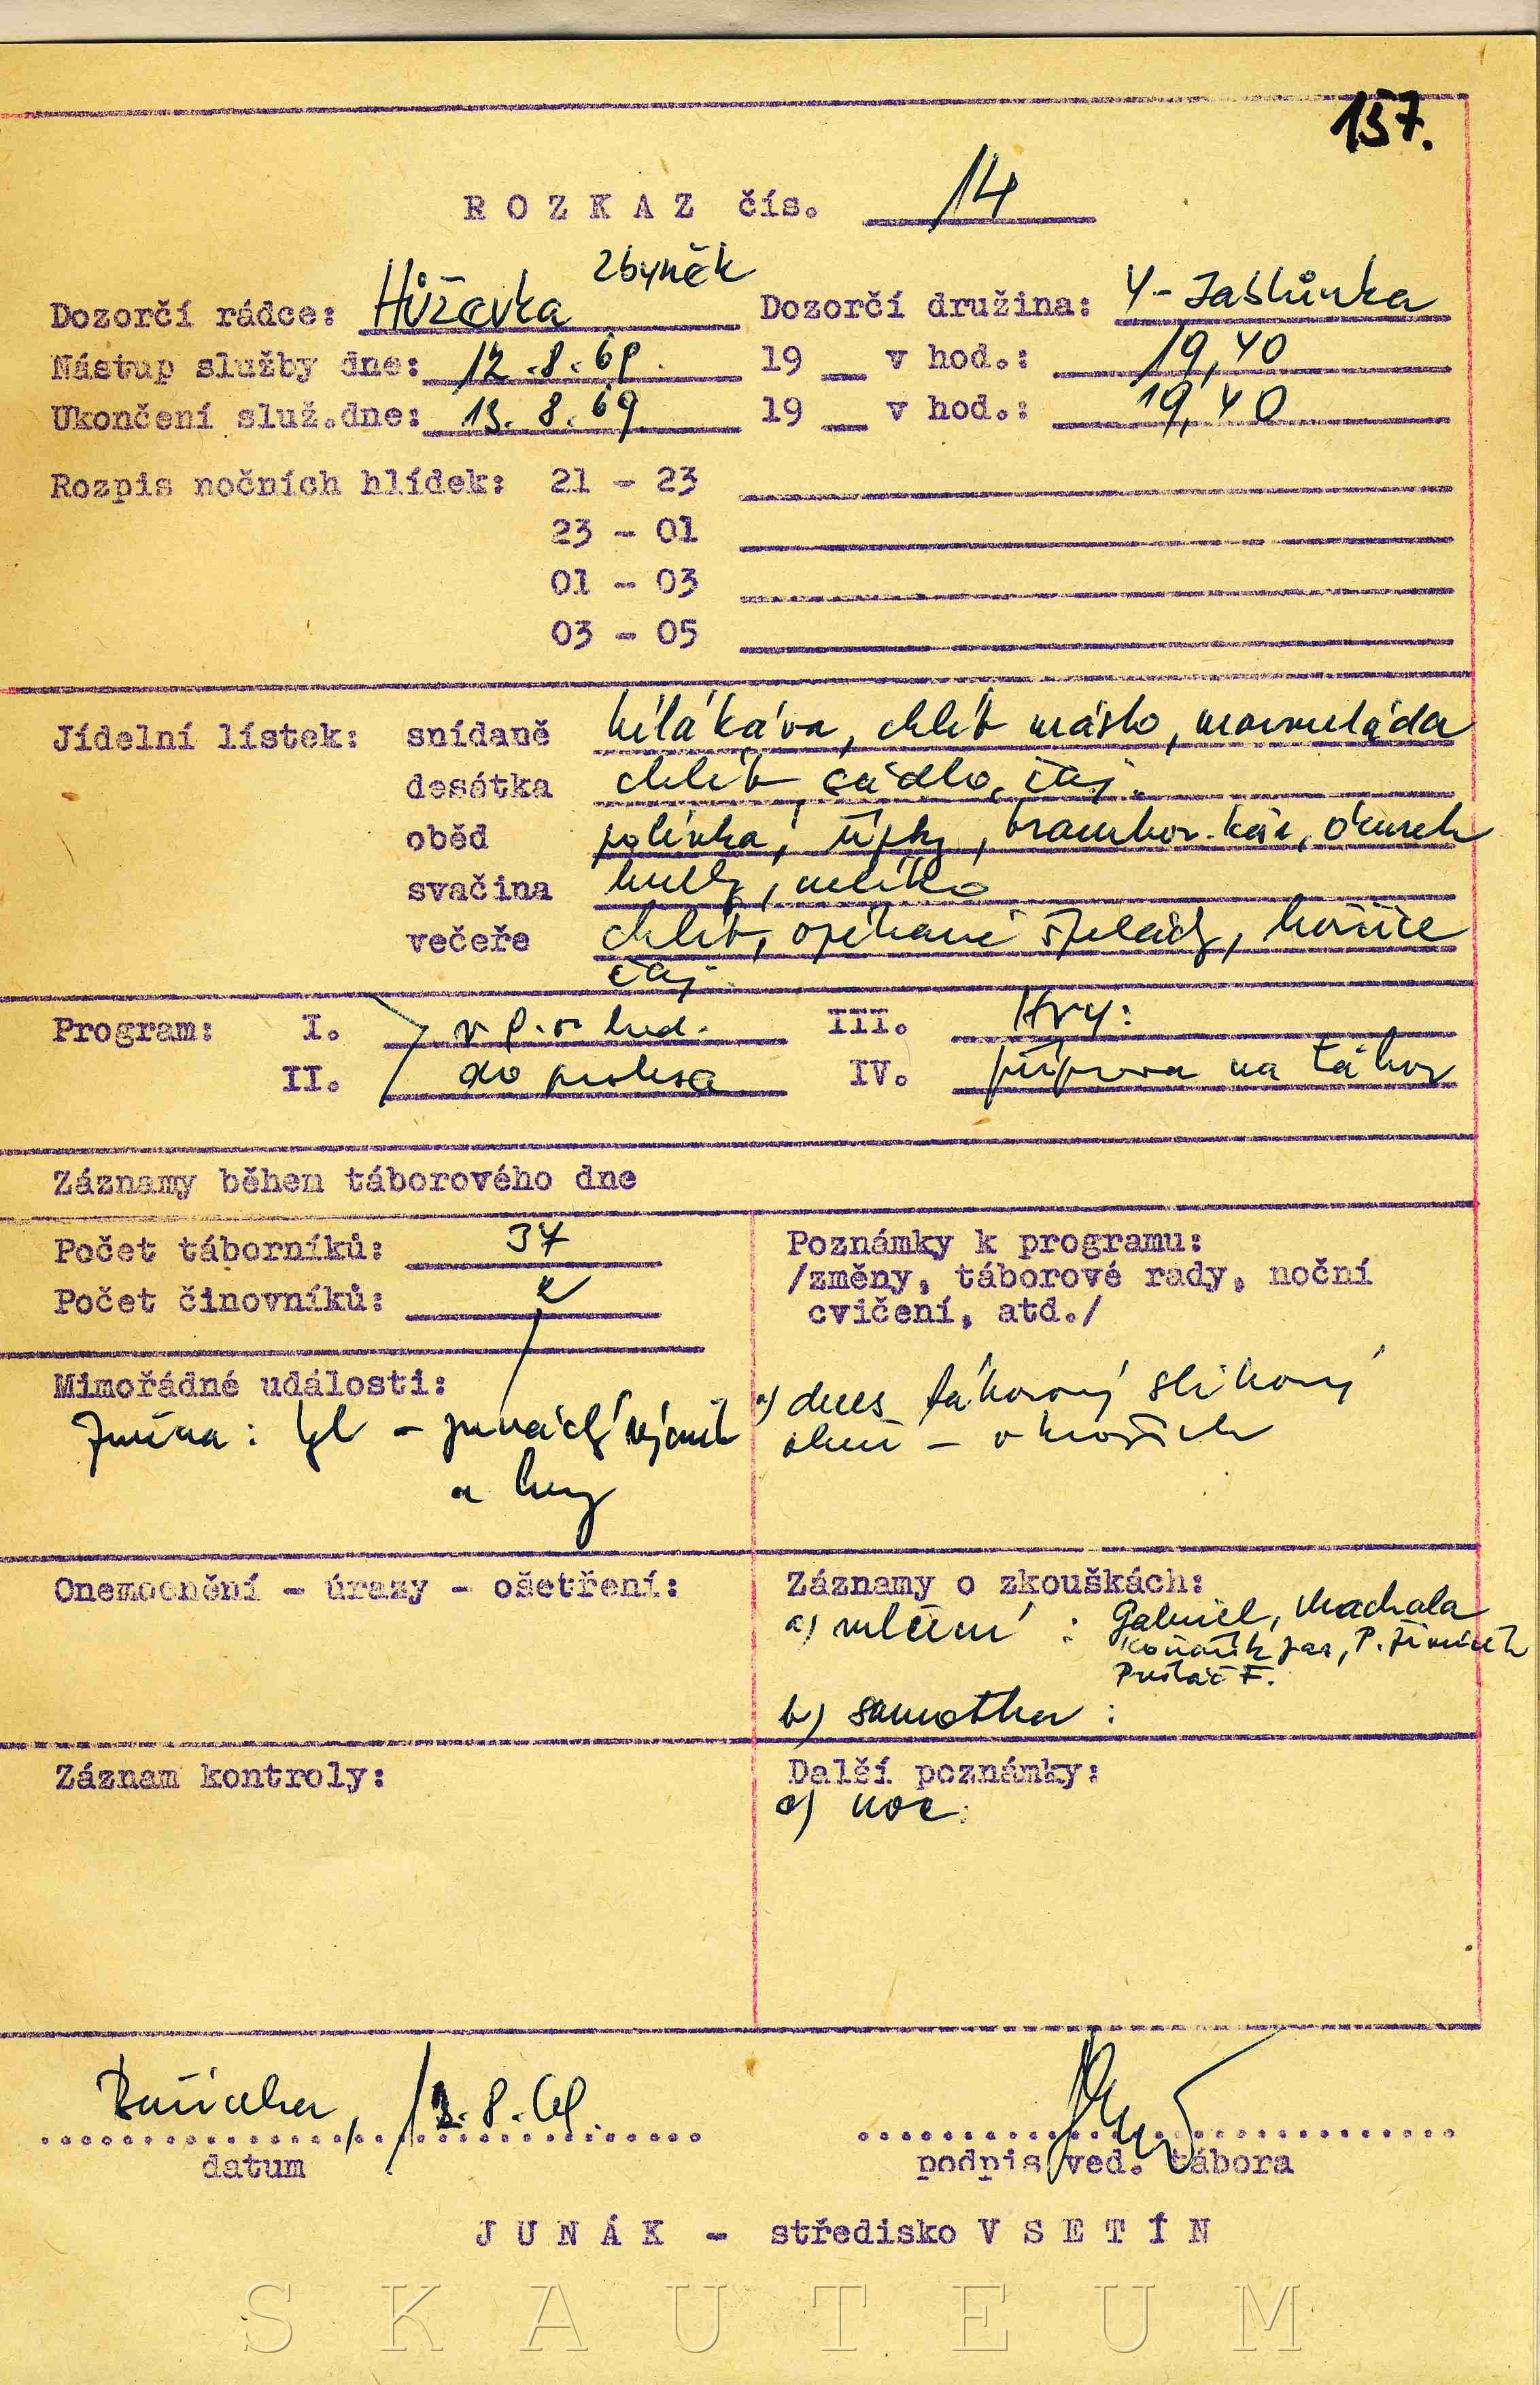 157.
ROZKAZ čís. 14
Dozorčí rádce: Hůževka Zbyněk Dozorčí družina: 4-
Nástup služby dne: 12.8.69. 19 __ v hod.: 19,40
Ukončení služ.dne: 13.8.69. 19 __ v hod.: 19,40
Rozpis nočních hlídek: 21 - 23
23 - 01
01 - 03
03 - 05
Jídelní lístek: snídaně bílá káva, chléb máslo, marmeláda
desátka chléb sádlo, čaj.
oběd polívka, brambor. kaše, okurek
svačina mléko
večeře chléb, opékané špekáčky, hořčice
čaj.
Program: I. III. Hry:
II. do IV. příprava na tábor
Záznamy během táborového dne
Počet táborníků: 37
Počet činovníků: 2
Poznámky k programu:
/změny, táborové rady, noční
cvičení, atd./
Mimořádné události:
a) dnes táborový slibový
oheň - v
a hry
Onemocnění - úrazy - ošetření:
Záznamy o zkouškách:
a) mlčení : Gabriel, Machala
P.
F.
b) samotka :
Záznam kontroly:
Další poznámky:
a) noc:
8.69.
datum
podpis ved. tábora
JUNÁK - středisko VSETÍN
SKAUTEUM